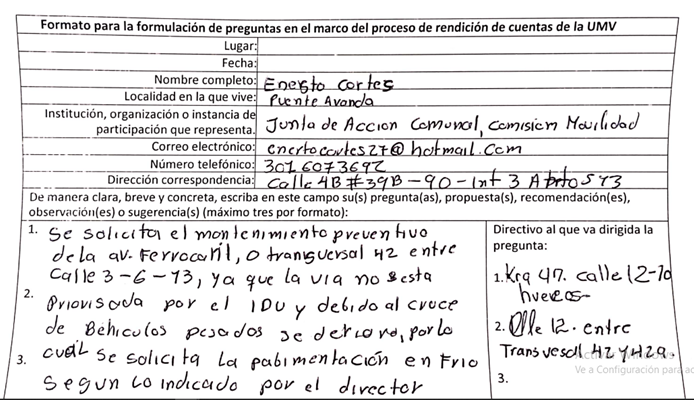 Formato para la formulación de preguntas en el marco del proceso de rendición de cuentas de la UMV
Lugar:
Fecha:
Nombre completo: Enesto cortes
Localidad en la que vive: Puente Aranda
Institución, organización o instancia de
participación que representa. Junta de Accion Comunal, comision Movilidad
Correo electrónico: enertocortes27@hotmail.com
Número telefónico: 3016073692
Dirección correspondencia: Calle 4B #39B-90-Int 3 Apto 573
De manera clara, breve y concreta, escriba en este campo su(s) pregunta(as), propuesta(s), recomendación(es),
observación(es) o sugerencia(s) (máximo tres por formato):
1. Se solicita el montenimiento preventivo
de la av. Ferrocaril, o transversal 42 entre
Calle 3-6-13, ya que la via no esta
2. Priorisada por el IDU y debido al cruce
de Behiculos pesados se deteriora, por lo
3. cual se solicita la pabimentación en Frio
Segun lo indicado por el director
Directivo al que va dirigida la
pregunta:
1. Kra 47. calle 12-10
huecos-
2. Calle 12. entre
Transvesal 42 y 42a.
3.
Ve a Configuración para ac